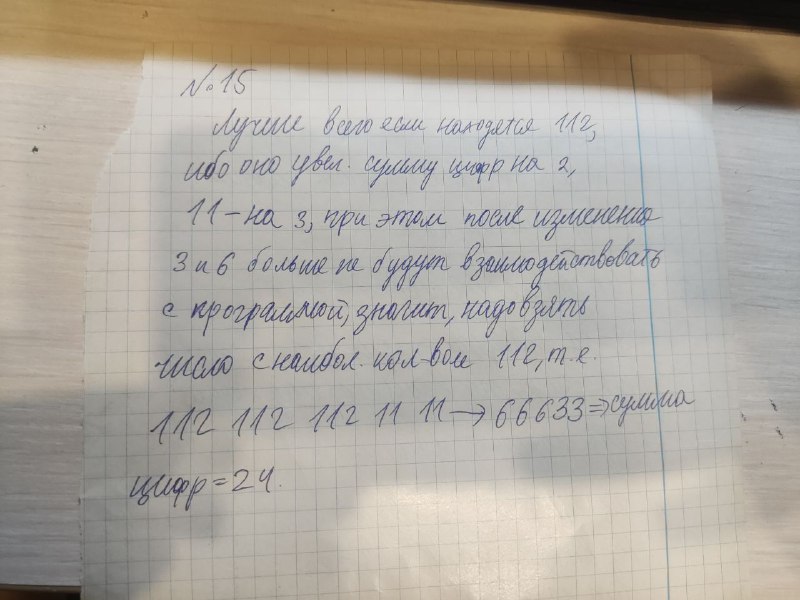 №15
Лучше всего если находятся 112,
ибо оно увел. сумму цифр на 2,
11 – на 3, при этом после изменения
3 и 6 больше не будут взаимодействовать
с программой, значит, надо взять
число с наибол. кол-вом 112, т.е.
112 112 112 11 11 → 66633 ⇒ сумма
цифр = 24.